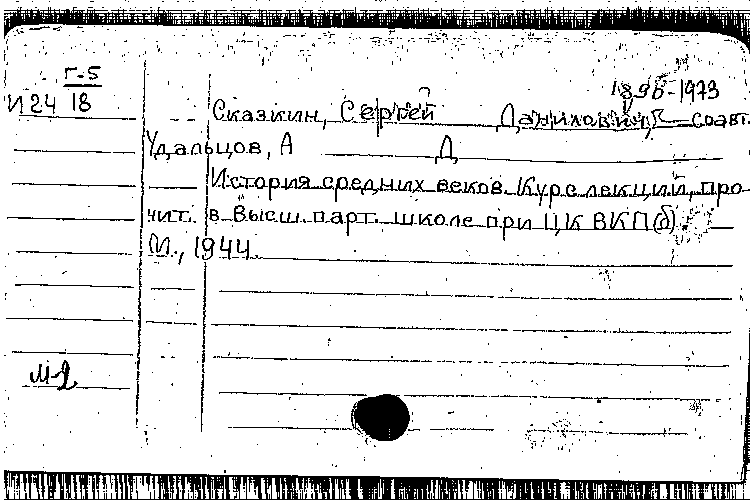 Г-5
И24 18
1890-1973
Сказкин, Сергей Данилович, соавт.
Удальцов, А Д
История средних веков. Курс лекций, про-
чит. в Высш. парт. школе при ЦК ВКП(б)
М., 1944.